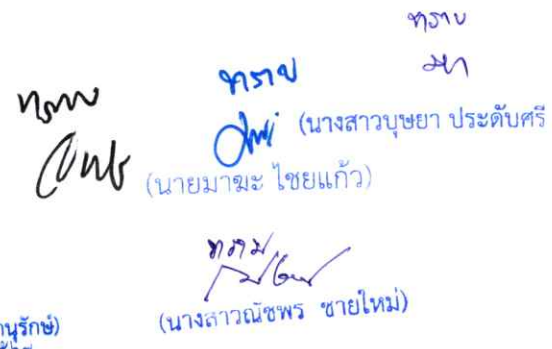 ทราบ
ทราบ
ทราบ
(นางสาวบุษยา ประดับศรี
(นายมาฆะ ไชยแก้ว)
ทราบ
(นางสาวณัชพร ชายใหม่)
นุรักษ์)